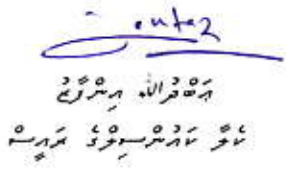 ޢަބްދުﷲ އިންފާޒު
ކެލާ ކައުންސިލްގެ ރައީސް